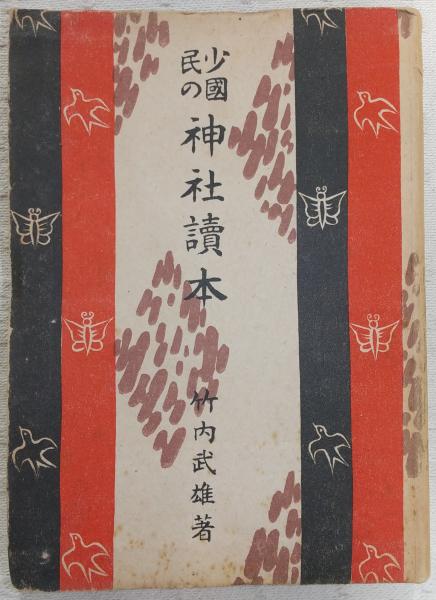 少國
民の
神社讀本
竹内武雄著